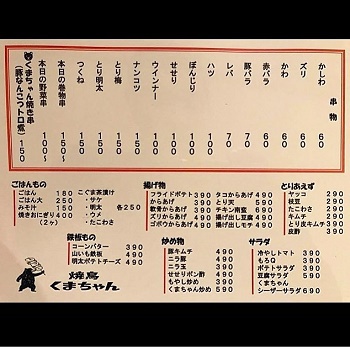 串物
かしわ 60
ズリ 60
かわ 60
赤バラ 60
豚バラ 70
レバ 70
ハツ 100
ぼんじり 100
せせり 100
ウインナー 100
ナンコツ 150
とり梅 150
とり明太 150
つくね 150
本日の巻物串 150〜
本日の野菜串 100〜
くまちゃん焼き串 150
(豚なんこつトロ煮)
ごはんもの
ごはん 180
ごはん大 250
みそ汁 150
焼きおにぎり 400
(2ヶ)
こぐま茶漬け
・サケ
・明太 各250
・ウメ
・たこわさ
揚げ物
フライドポテト 390
からあげ 390
軟骨からあげ 390
ズリからあげ 490
ゴボウからあげ 490
タコからあげ 490
とり天 590
チキン南蛮 690
揚げ出し豆腐 490
揚げ出しモチ 490
とりあえず
ヤッコ 290
枝豆 290
たこわさ 290
キムチ 290
とり皮キムチ 390
皮酢 390
鉄板もの
コーンバター 390
山いも鉄板 490
明太ポテトチーズ 490
炒め物
豚キムチ 490
ニラ豚 490
ニラ玉 390
せせりポン酢 490
もやし炒め 390
くまちゃん炒め 590
サラダ
冷やしトマト 390
もろQ 390
ポテトサラダ 390
豆腐サラダ 590
くまちゃん
シーザーサラダ 690
焼鳥
くまちゃん